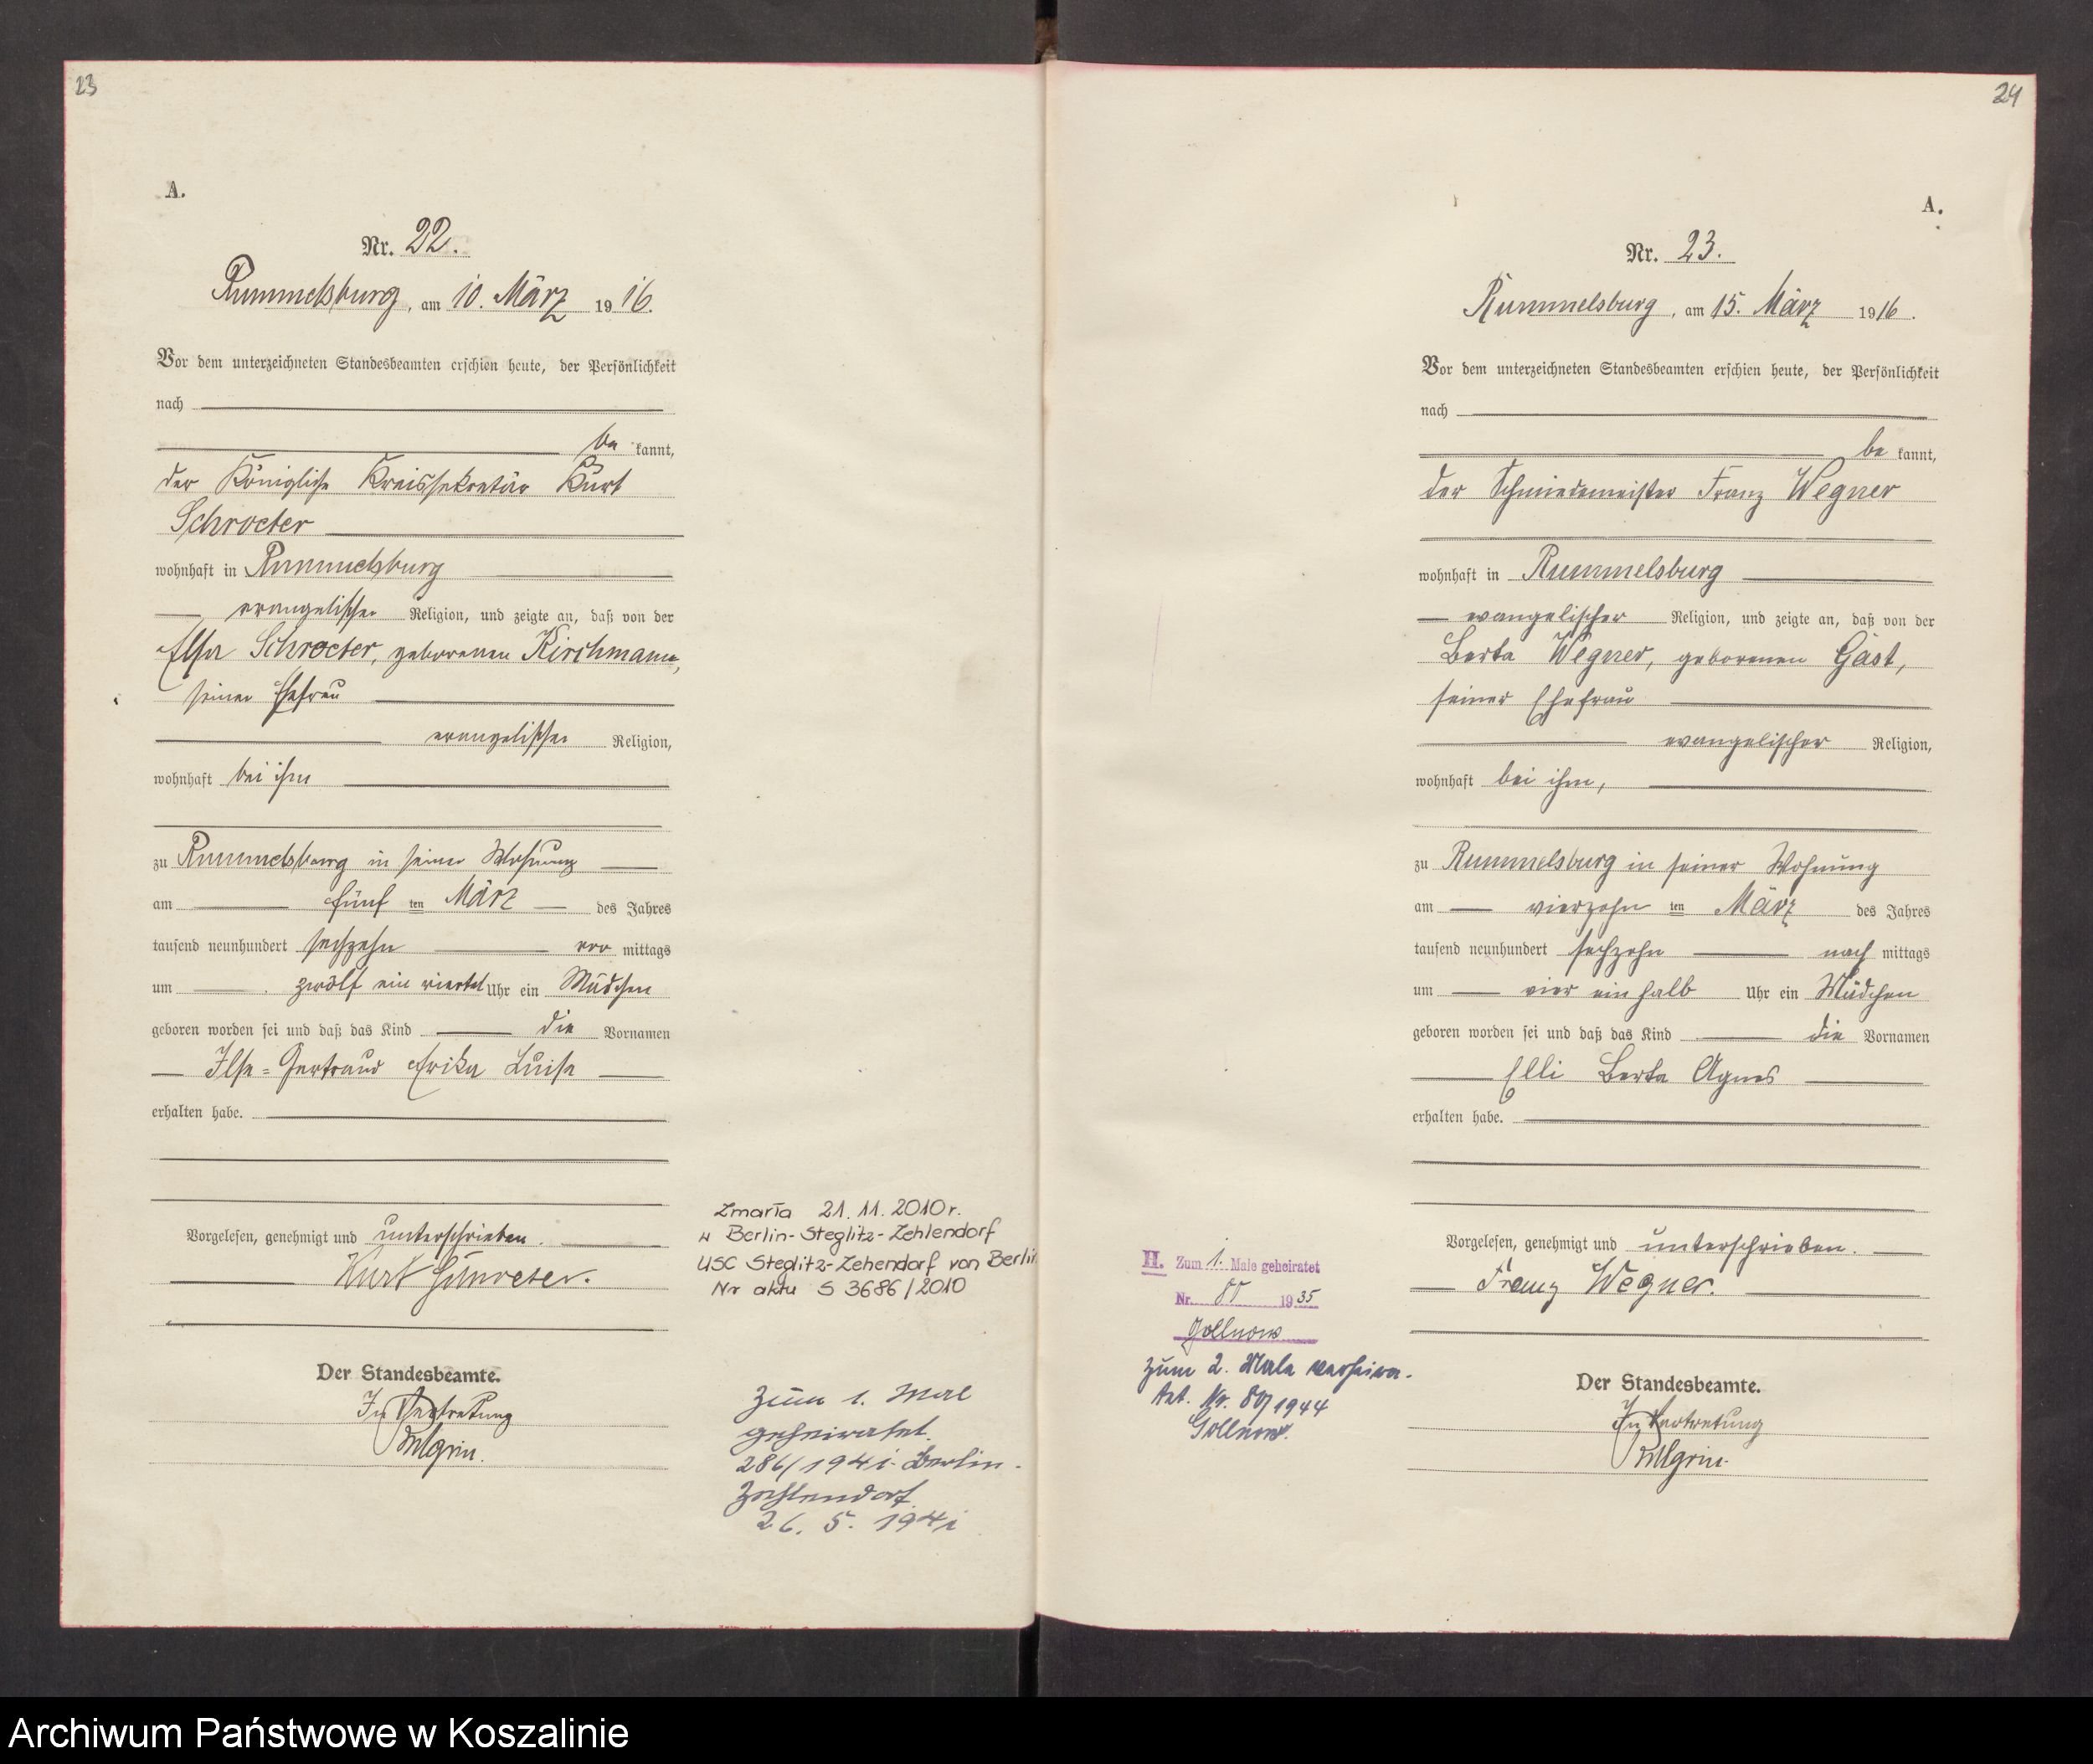 23
A.
Nr. 22.
Rummelsburg, am 10. März 1916.
Vor dem unterzeichneten Standesbeamten erschien heute, der Persönlichkeit
nach
be kannt,
der Königliche Kreissekretär Kurt
Schroeter
wohnhaft in Rummelsburg
evangelischer Religion, und zeigte an, daß von der
Elsa Schroeter, geborenen Kirchmann,
seiner Ehefrau
evangelischer Religion,
wohnhaft bei ihm
zu Rummelsburg in seiner Wohnung
am fünf ten März des Jahres
tausend neunhundert sechzehn vor mittags
um zwölf ein viertel Uhr ein Mädchen
geboren worden sei und daß das Kind die Vornamen
Ilse-Gertraud Erika Luise
erhalten habe.
Vorgelesen, genehmigt und unterschrieben.
Kurt Schroeter.
Der Standesbeamte.
In Vertretung
Zmarła 21.11.2010r.
w Berlin-Steglitz-Zehlendorf
USC Steglitz-Zehendorf von Berlin
Nr aktu S 3686/2010
Zum 1. Mal
geheiratet.
286/1941 Berlin-
Zehlendorf
26. 5. 1941
24
A.
Nr. 23.
Rummelsburg, am 15. März 1916.
Vor dem unterzeichneten Standesbeamten erschien heute, der Persönlichkeit
nach
be kannt,
der Schmiedemeister Franz Wegner
wohnhaft in Rummelsburg
evangelischer Religion, und zeigte an, daß von der
Berta Wegner, geborenen Gast,
seiner Ehefrau
evangelischer Religion,
wohnhaft bei ihm,
zu Rummelsburg in seiner Wohnung
am vierzehn ten März des Jahres
tausend neunhundert sechzehn nach mittags
um vier ein halb Uhr ein Mädchen
geboren worden sei und daß das Kind die Vornamen
Elli Berta Agnes
erhalten habe.
Vorgelesen, genehmigt und unterschrieben.
Franz Wegner.
Der Standesbeamte.
In Vertretung
H. Zum 1. Male geheiratet
Nr. 1935
Gollnow
Zum 2. Male verheira-
tet. Nr. 80/1944
Gollnow.
Archiwum Państwowe w Koszalinie